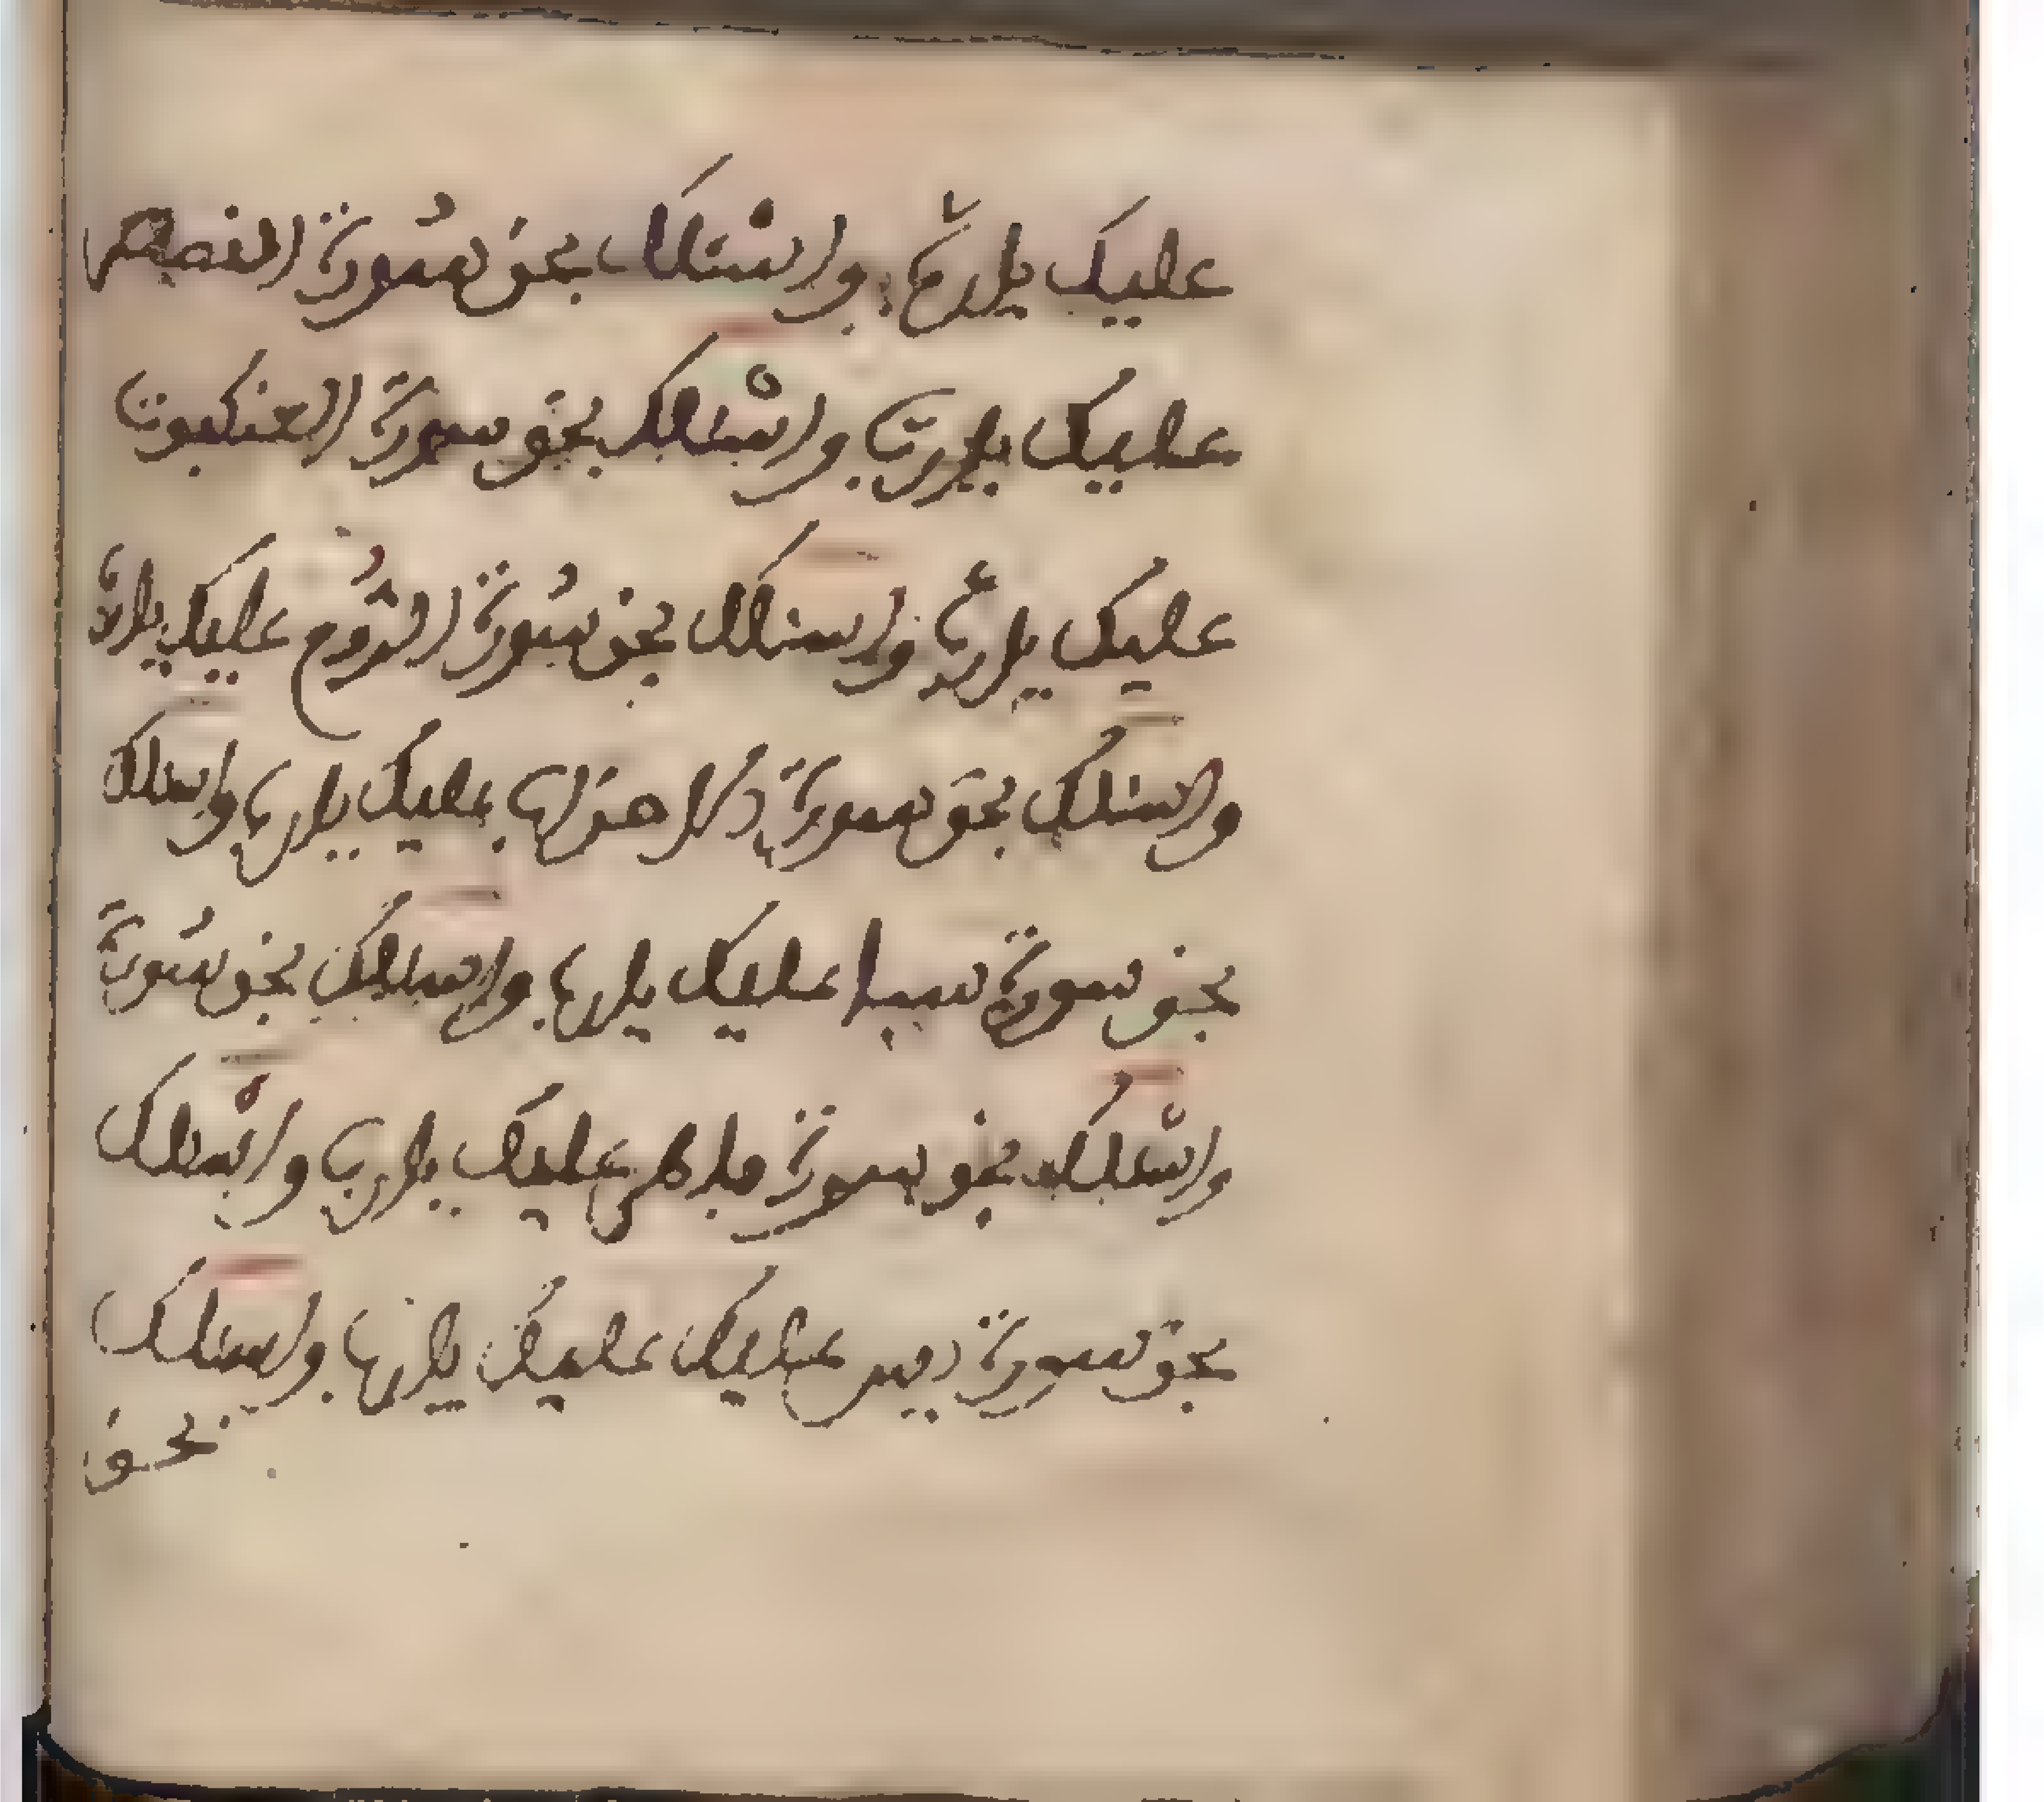 عليك يا رب واسئلك بحق سورة القصص
عليك يا رب واسئلك بحق سورة العنكبوت
عليك يا رب واسئلك بحق سورة الروم عليك يا رب
واسئلك بحق سورة الاحزاب عليك يا رب واسئلك
بحق سورة سبا عليك يا رب واسئلك بحق سورة
واسئلك بحق سورة فاطر عليك يا رب واسئلك
بحق سورة يس عليك عليك يا رب واسئلك
بحق